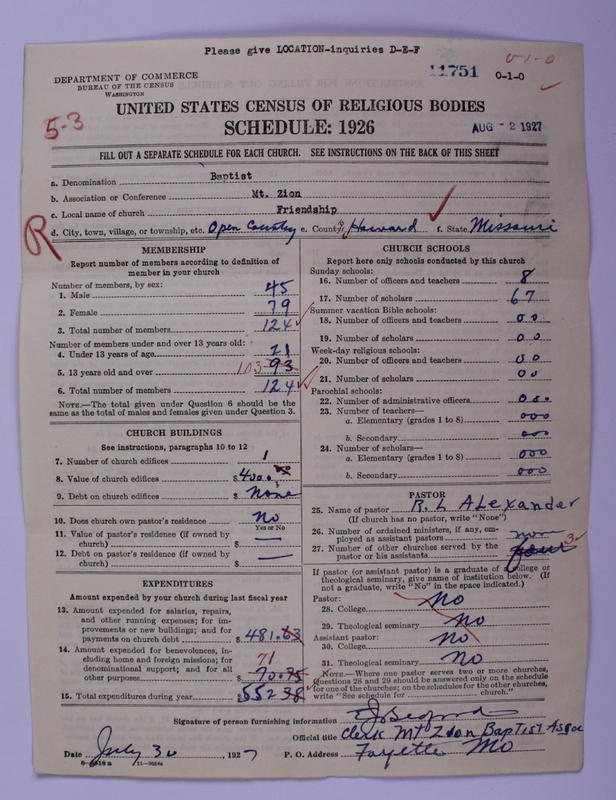 Please give LOCATION-inquiries D-E-F
DEPARTMENT OF COMMERCE
BUREAU OF THE CENSUS
WASHINGTON
11751 0-1-0
0-1-0
5-3
UNITED STATES CENSUS OF RELIGIOUS BODIES
SCHEDULE: 1926
AUG - 2 1927
FILL OUT A SEPARATE SCHEDULE FOR EACH CHURCH. SEE INSTRUCTIONS ON THE BACK OF THIS SHEET
a. Denomination Baptist
b. Association or Conference Mt. Zion
c. Local name of church Friendship
R
d. City, town, village, or township, etc. Open Country e. County Howard f. State Missouri
MEMBERSHIP
Report number of members according to definition of
member in your church
Number of members, by sex:
1. Male 45
2. Female 79
3. Total number of members 124
Number of members under and over 13 years old:
4. Under 13 years of age 21
5. 13 years old and over 103 93
6. Total number of members 124
NOTE.—The total given under Question 6 should be the
same as the total of males and females given under Question 3.
CHURCH BUILDINGS
See instructions, paragraphs 10 to 12
7. Number of church edifices 1
8. Value of church edifices $400.00
9. Debt on church edifices $ None
10. Does church own pastor's residence No
Yes or No
11. Value of pastor's residence (if owned by
church) $ —
12. Debt on pastor's residence (if owned by
church) $ —
EXPENDITURES
Amount expended by your church during last fiscal year
13. Amount expended for salaries, repairs,
and other running expenses; for im-
provements or new buildings; and for
payments on church debt $ 481.63
14. Amount expended for benevolences, in-
cluding home and foreign missions; for
denominational support; and for all
other purposes $ 71 70.75
15. Total expenditures during year $ 552 38
CHURCH SCHOOLS
Report here only schools conducted by this church
Sunday schools:
16. Number of officers and teachers 8
17. Number of scholars 67
Summer vacation Bible schools:
18. Number of officers and teachers 00
19. Number of scholars 00
Week-day religious schools:
20. Number of officers and teachers 00
21. Number of scholars 00
Parochial schools:
22. Number of administrative officers 000
23. Number of teachers—
a. Elementary (grades 1 to 8) 000
b. Secondary 000
24. Number of scholars—
a. Elementary (grades 1 to 8) 000
b. Secondary 000
PASTOR
25. Name of pastor R. L Alexander
(If church has no pastor, write "None")
26. Number of ordained ministers, if any, em-
ployed as assistant pastors none
27. Number of other churches served by the
pastor or his assistants four 3
If pastor (or assistant pastor) is a graduate of a college or
theological seminary, give name of institution below. (If
not a graduate, write "No" in the space indicated.)
Pastor:
28. College No
29. Theological seminary No
Assistant pastor:
30. College No
31. Theological seminary No
NOTE.—Where one pastor serves two or more churches,
Questions 28 and 29 should be answered only on the schedule
for one of the churches; on the schedules for the other churches,
write "See schedule for church."
Signature of person furnishing information
Official title Clerk Mt Zion Baptist Assoc
Date July 30, 1927 P. O. Address Fayette Mo